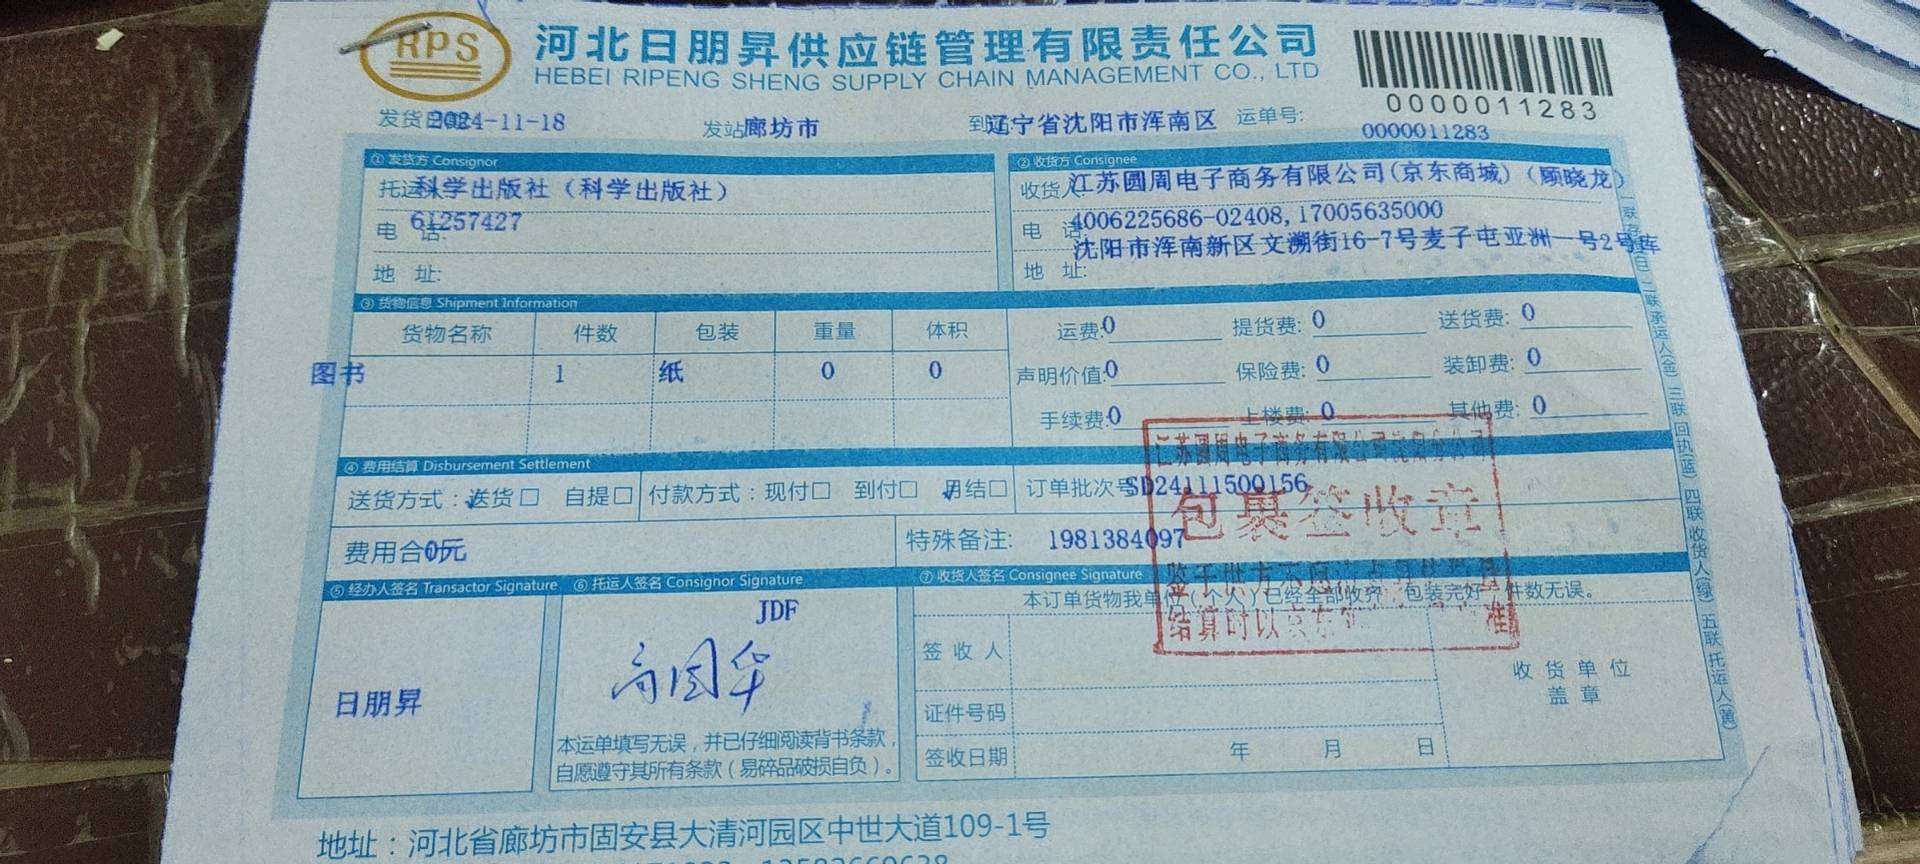 RPS
河北日朋昇供应链管理有限责任公司
HEBEI RIPENG SHENG SUPPLY CHAIN MANAGEMENT CO., LTD
0000011283
发货日 2024-11-18 发站 廊坊市 到 辽宁省沈阳市浑南区 运单号: 0000011283
① 发货方 Consignor
托运 科学出版社（科学出版社）
电 话: 61257427
地 址:
② 收货方 Consignee
收货人 江苏圆周电子商务有限公司(京东商城)（顾晓龙）
电 话 4006225686-02408,17005635000
沈阳市浑南新区文溯街16-7号麦子屯亚洲一号2号库
地 址:
③ 货物信息 Shipment Information
货物名称 件数 包装 重量 体积
图书 1 纸 0 0
运费:0 提货费:0 送货费:0
声明价值:0 保险费:0 装卸费:0
手续费:0 上楼费:0 其他费:0
④ 费用结算 Disbursement Settlement
送货方式：送货□ 自提□ 付款方式：现付□ 到付□ 月结□ 订单批次号 SD24111500156
费用合 0元 特殊备注: 1981384097
江苏圆周电子商务有限公司沈阳分公司
包裹签收章
⑤ 经办人签名 Transactor Signature
日朋昇
⑥ 托运人签名 Consignor Signature
JDF
高国华
本运单填写无误，并已仔细阅读背书条款，
自愿遵守其所有条款（易碎品破损自负）。
⑦ 收货人签名 Consignee Signature
本订单货物我单位（个人）已经全部收齐，包装完好，件数无误。
签收人
证件号码
签收日期 年 月 日
收货单位
盖章
一联 二联承运人(金) 三联回执(蓝) 四联收货人(绿) 五联托运人(黄)
地址：河北省廊坊市固安县大清河园区中世大道109-1号